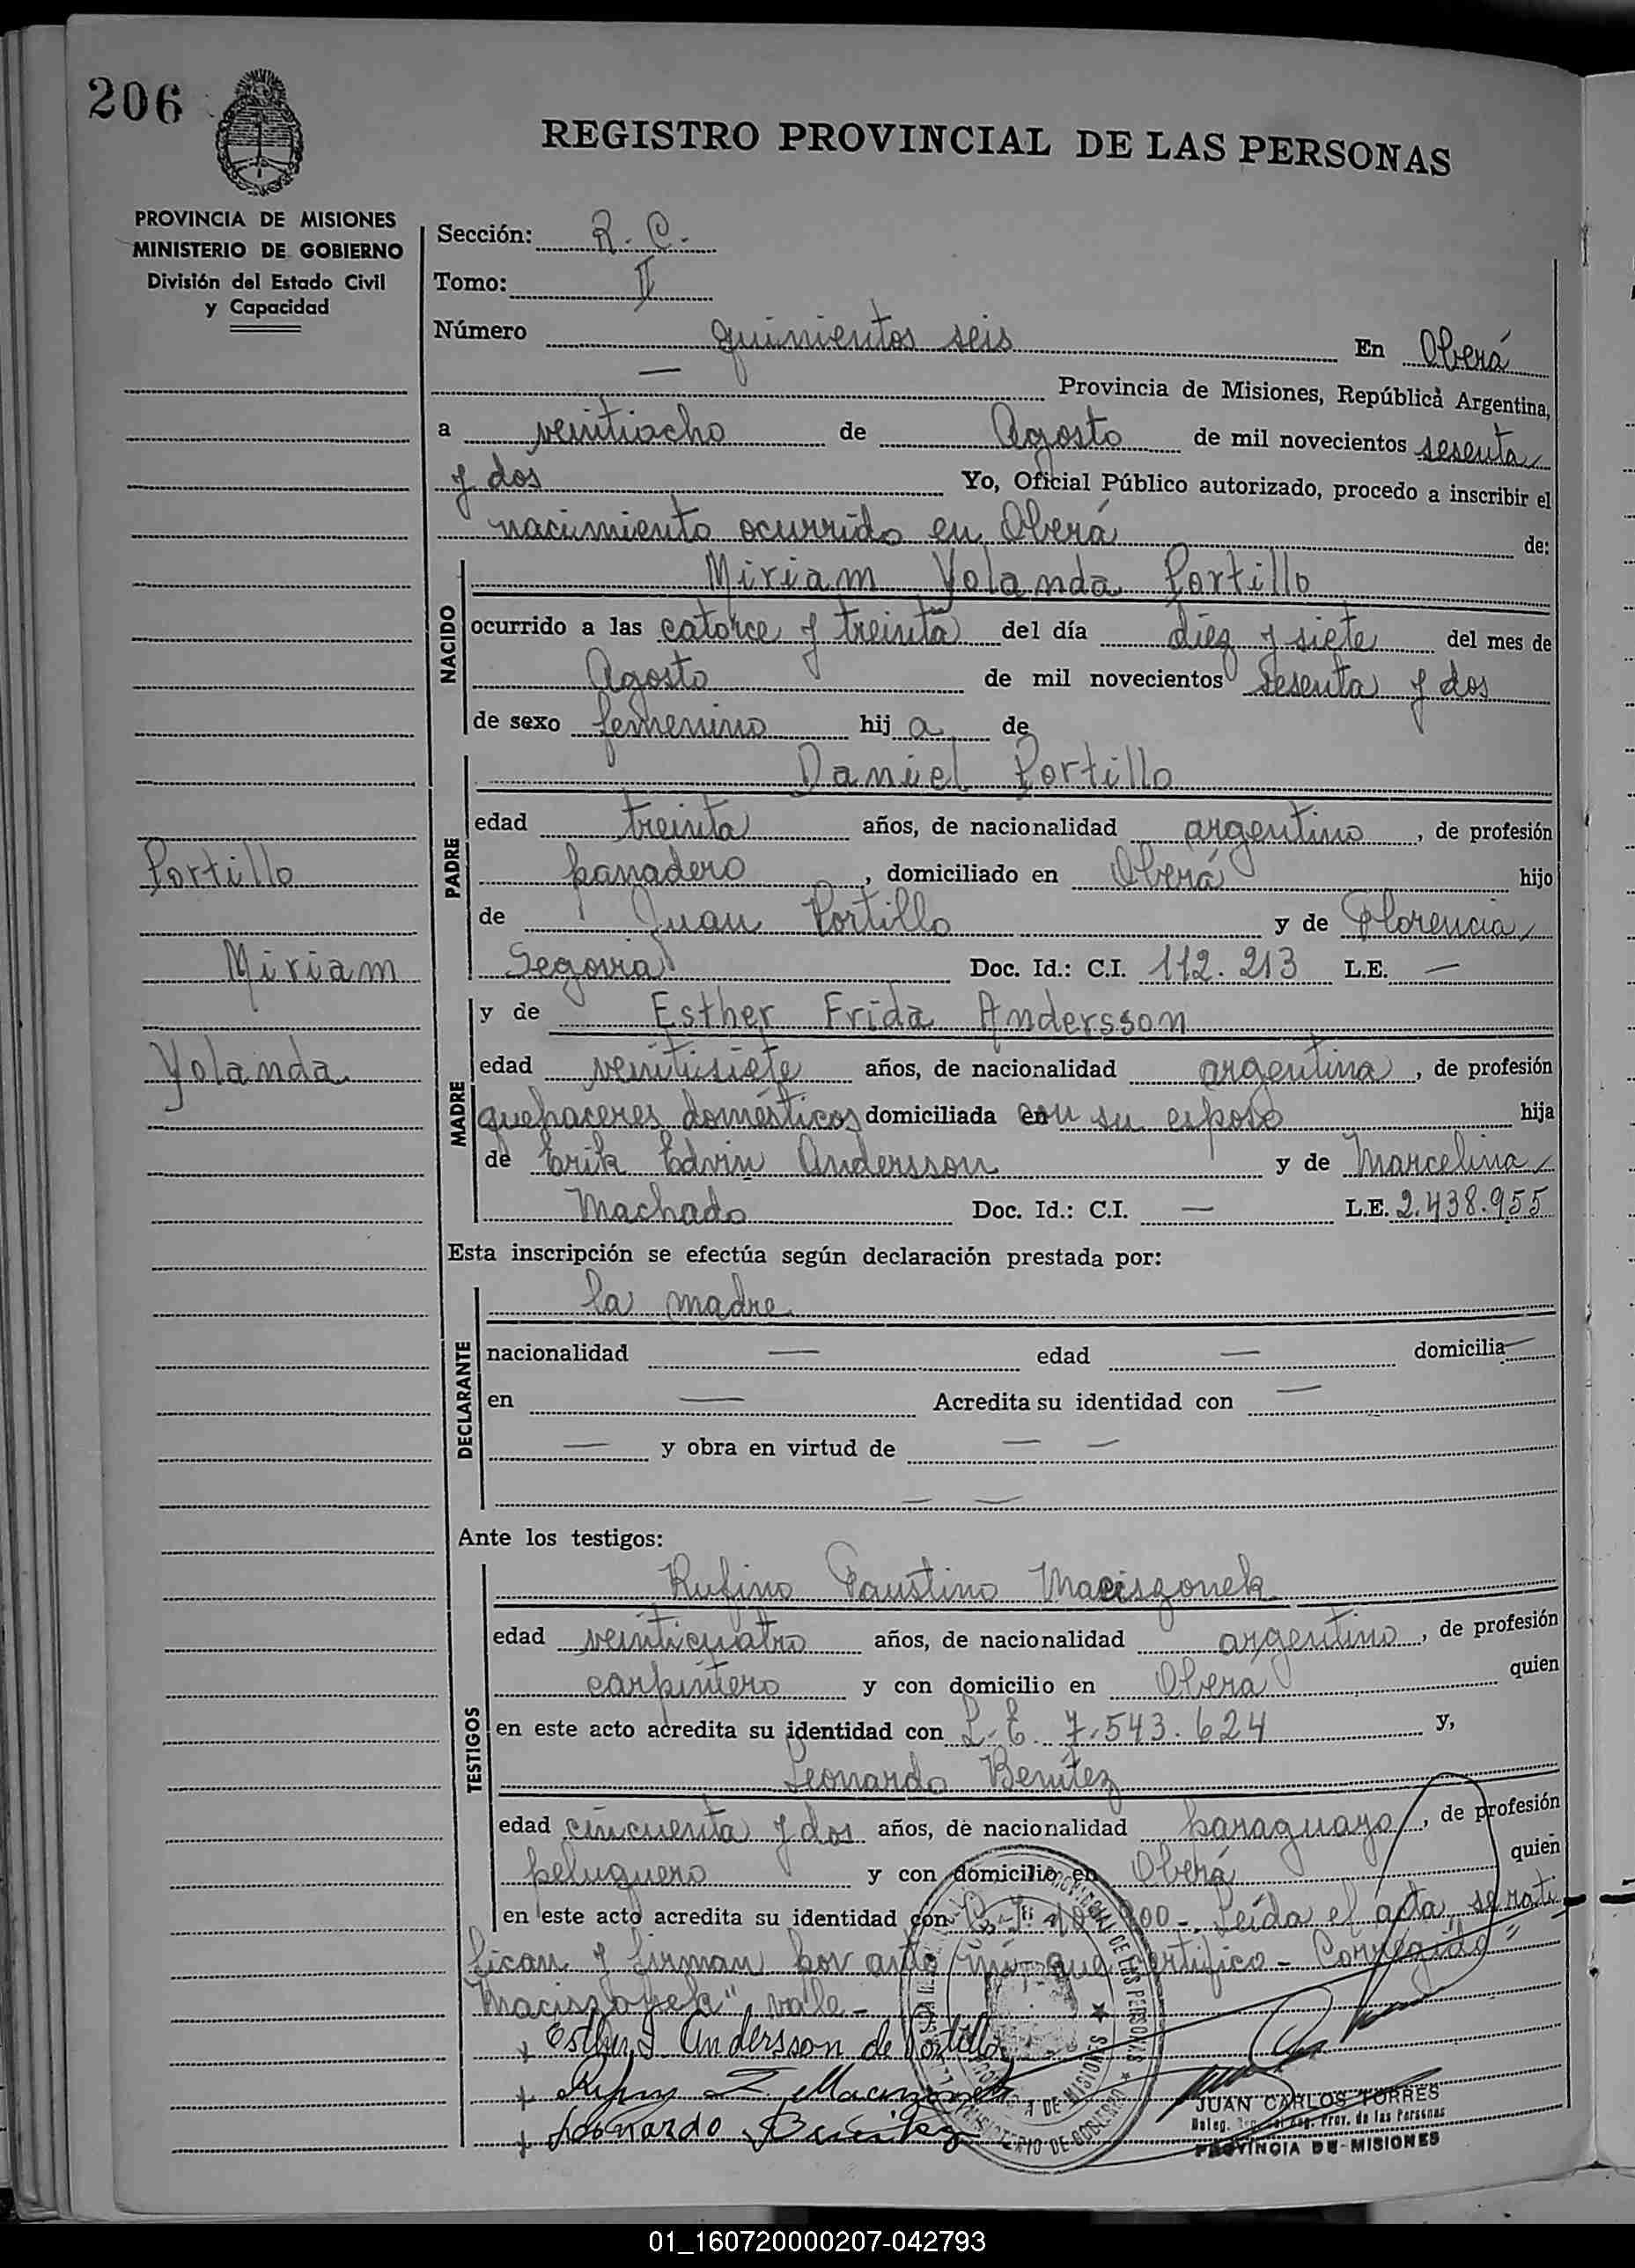 206
REGISTRO PROVINCIAL DE LAS PERSONAS
PROVINCIA DE MISIONES
MINISTERIO DE GOBIERNO
División del Estado Civil
y Capacidad
Sección: R. C.
Tomo: II
Número quinientos seis En Oberá
— Provincia de Misiones, República Argentina,
a veintiocho de Agosto de mil novecientos sesenta
y dos Yo, Oficial Público autorizado, procedo a inscribir el
nacimiento ocurrido en Oberá de:
NACIDO
Miriam Yolanda Portillo
ocurrido a las catorce y treinta del día diez y siete del mes de
Agosto de mil novecientos sesenta y dos
de sexo femenino hij a de
PADRE
Daniel Portillo
edad treinta años, de nacionalidad argentino, de profesión
panadero, domiciliado en Oberá hijo
de Juan Portillo y de Florencia
Segovia Doc. Id.: C.I. 112.213 L.E. —
Portillo
Miriam
Yolanda
MADRE
y de Esther Frida Andersson
edad veintisiete años, de nacionalidad argentina, de profesión
quehaceres domésticos domiciliada con su esposo hija
de Erik Edvin Andersson y de Marcelina
Machado Doc. Id.: C.I. — L.E. 2.438.955
Esta inscripción se efectúa según declaración prestada por:
DECLARANTE
la madre
nacionalidad — edad — domicilia—
en — Acredita su identidad con —
— y obra en virtud de — —
— —
Ante los testigos:
TESTIGOS
Rufino Faustino Maciszonek
edad veinticuatro años, de nacionalidad argentino, de profesión
carpintero y con domicilio en Oberá quien
en este acto acredita su identidad con L.E. 7.543.624 y,
Leonardo Benitez
edad cincuenta y dos años, de nacionalidad paraguayo, de profesión
peluquero y con domicilio en Oberá quien
en este acto acredita su identidad con Leída el acta, se rati
fican y firman por ante mí, que certifico - Corregido "
Maciszonek" vale -
x Esther F Andersson de Portillo
x
x Leonardo Benitez
JUAN CARLOS TORRES
Prov. de las Personas
PROVINCIA DE MISIONES
01_160720000207-042793